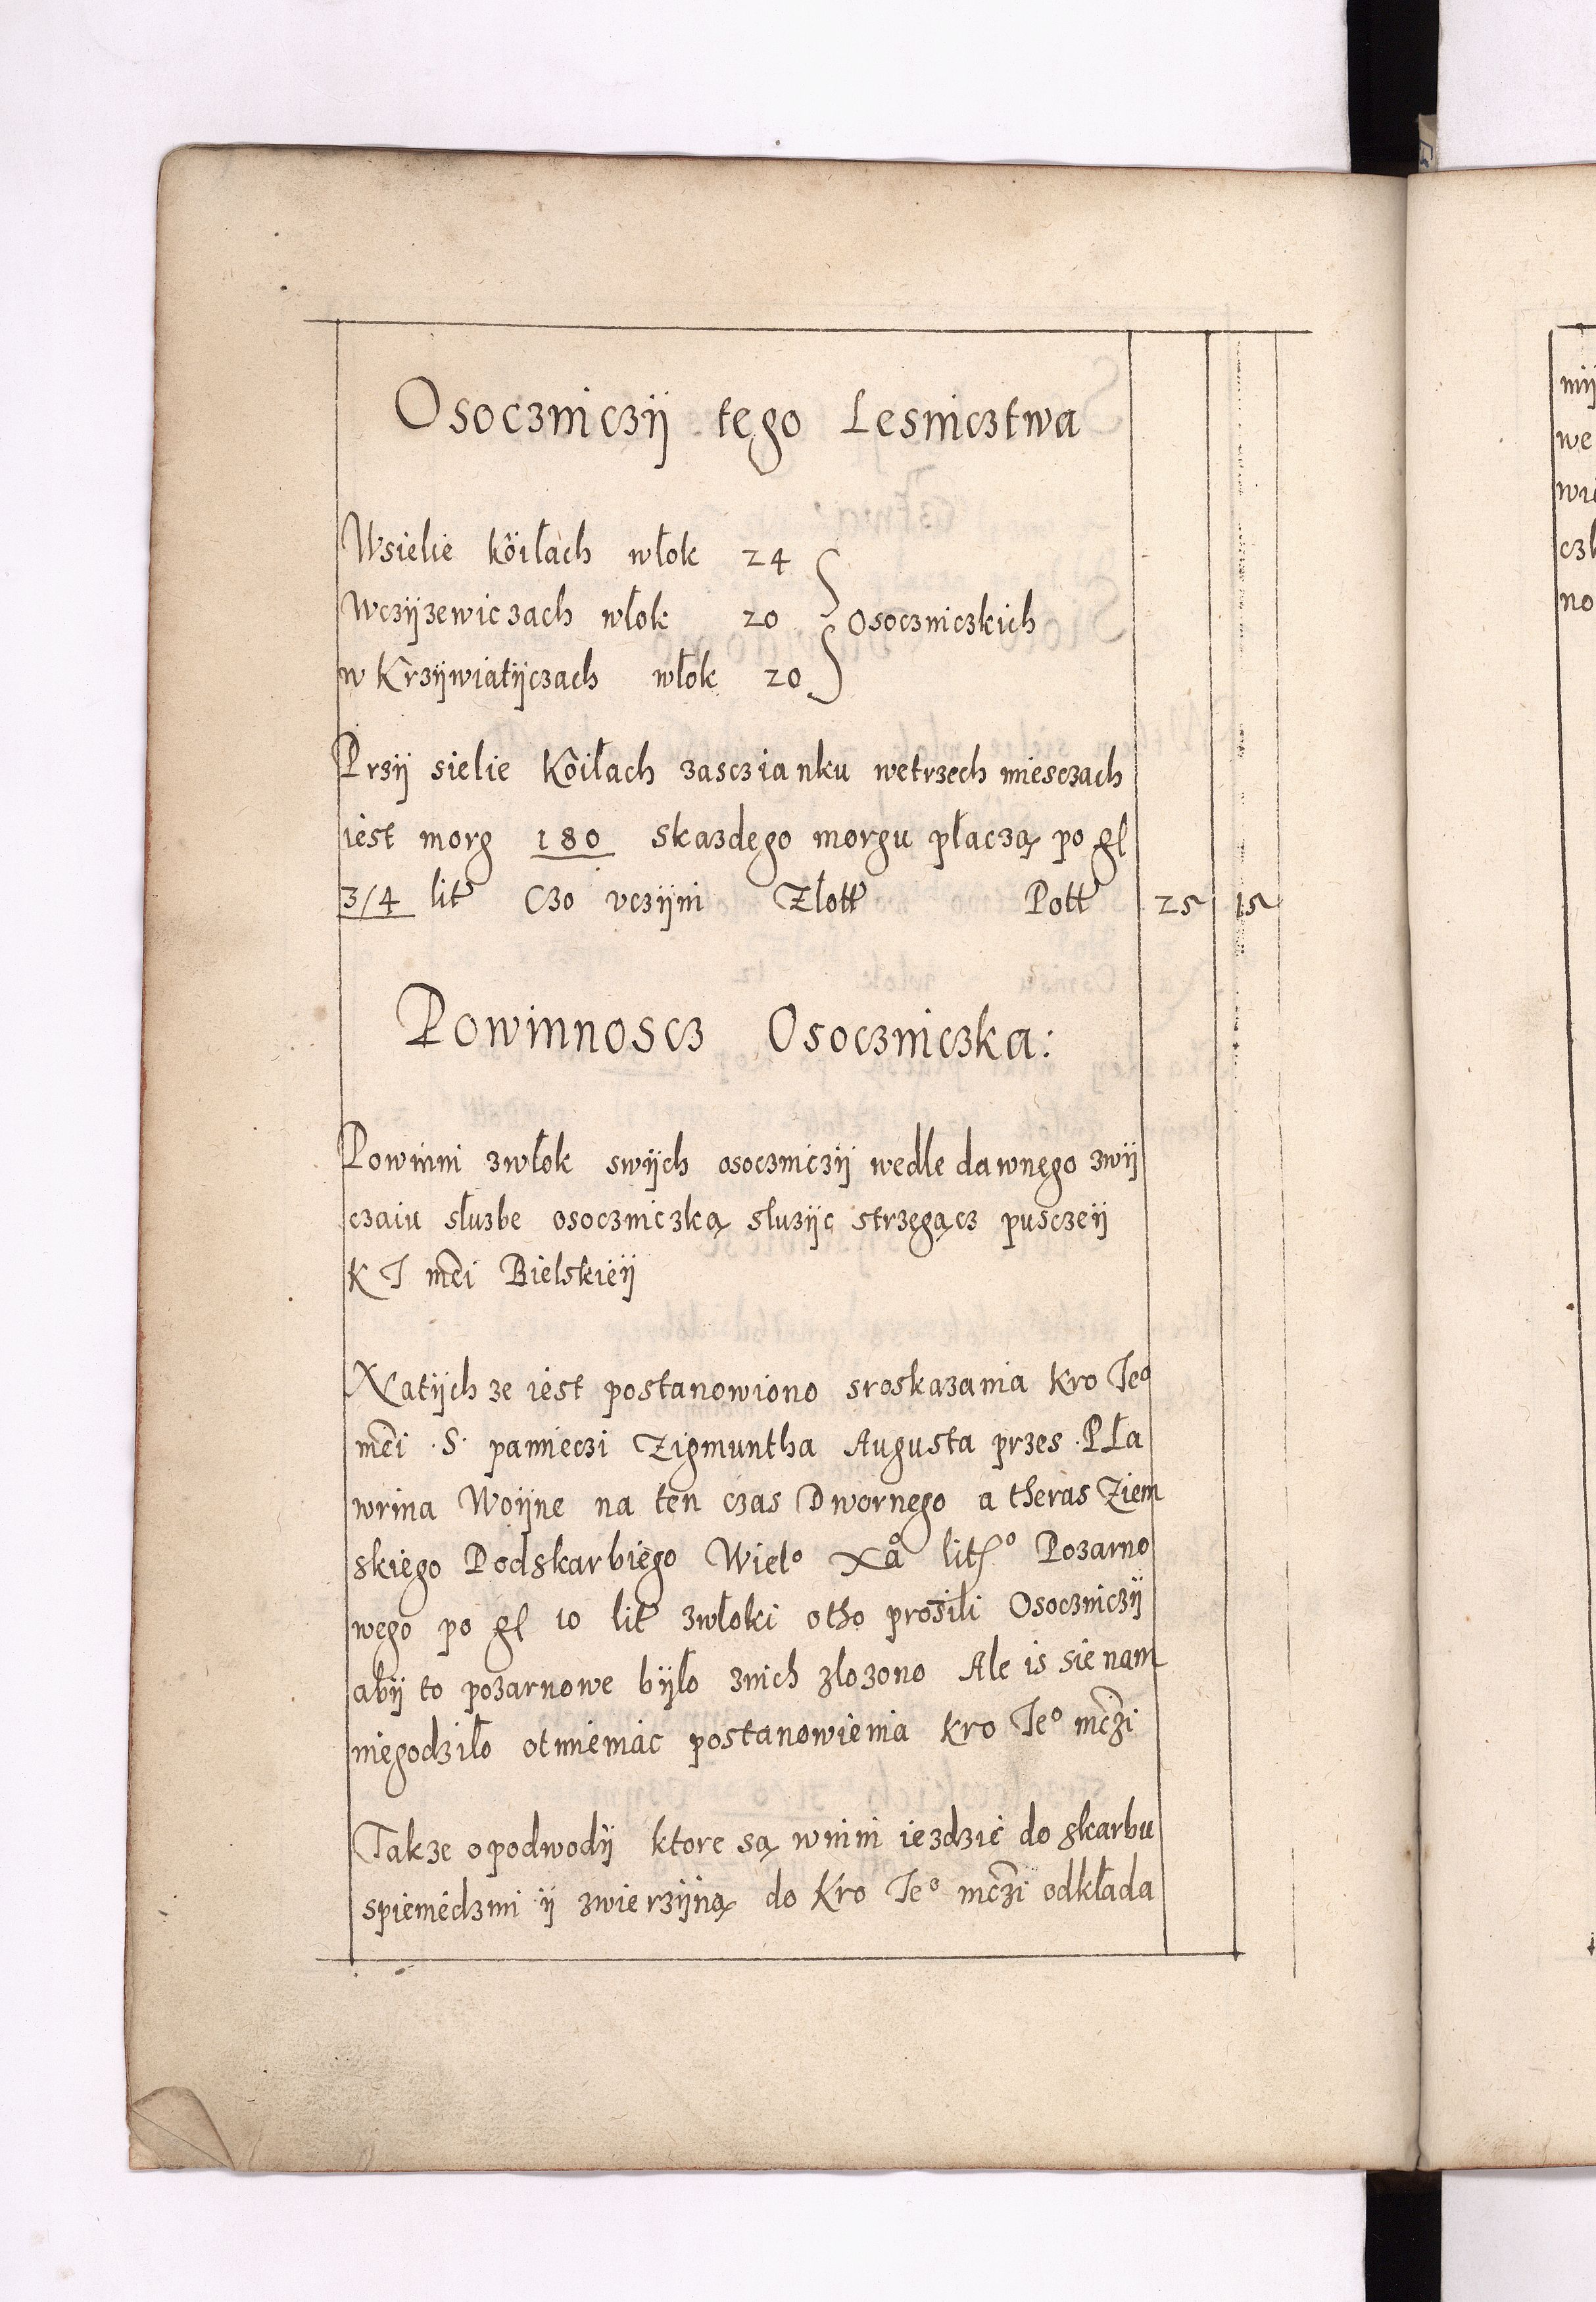 Osoczniczÿ tego Lesnicztwa
Wsielie Kôiłach włok 24
Wczÿzewiczach włok 20 osoczniczkich
w Krzÿwiatÿczach włok 20
Przÿ sielie Kôiłach zasczianku wetrzech miesczach
iest morg 180 skazdego morgu płaczą po gl
3/4 lit Czo vczÿni Złott Pott 25 15
Powinnoscz Osoczniczka:
Powinni zwłok swÿch osoczniczÿ wedle dawnego zwÿ
czaiu słuzbe osoczniczką sluzÿc strzegącz pusczeÿ
K J mci Bielskieÿ
Natÿch ze iest postanowiono sroskazania Kro Jeo
mci S. pamieczi Zigmuntha Augusta przes P Ła
wrina Woÿne na ten czas Dwornego a theras Ziem
skiego Podskarbiego Wielo Xa lito Pozarno
wego po gl 10 lit zwłoki otho prosili Osoczniczÿ
abÿ to pozarnowe bÿło znich zlozono Ale is sie nam
niegodziło otmieniac postanowienia Kro Jeo mczi
Takze opodwodÿ ktore są winni iezdzic do skarbu
spieniedzmi ÿ zwierzÿną do Kro Jeo mczi odkłada
mÿ
we
wie
no